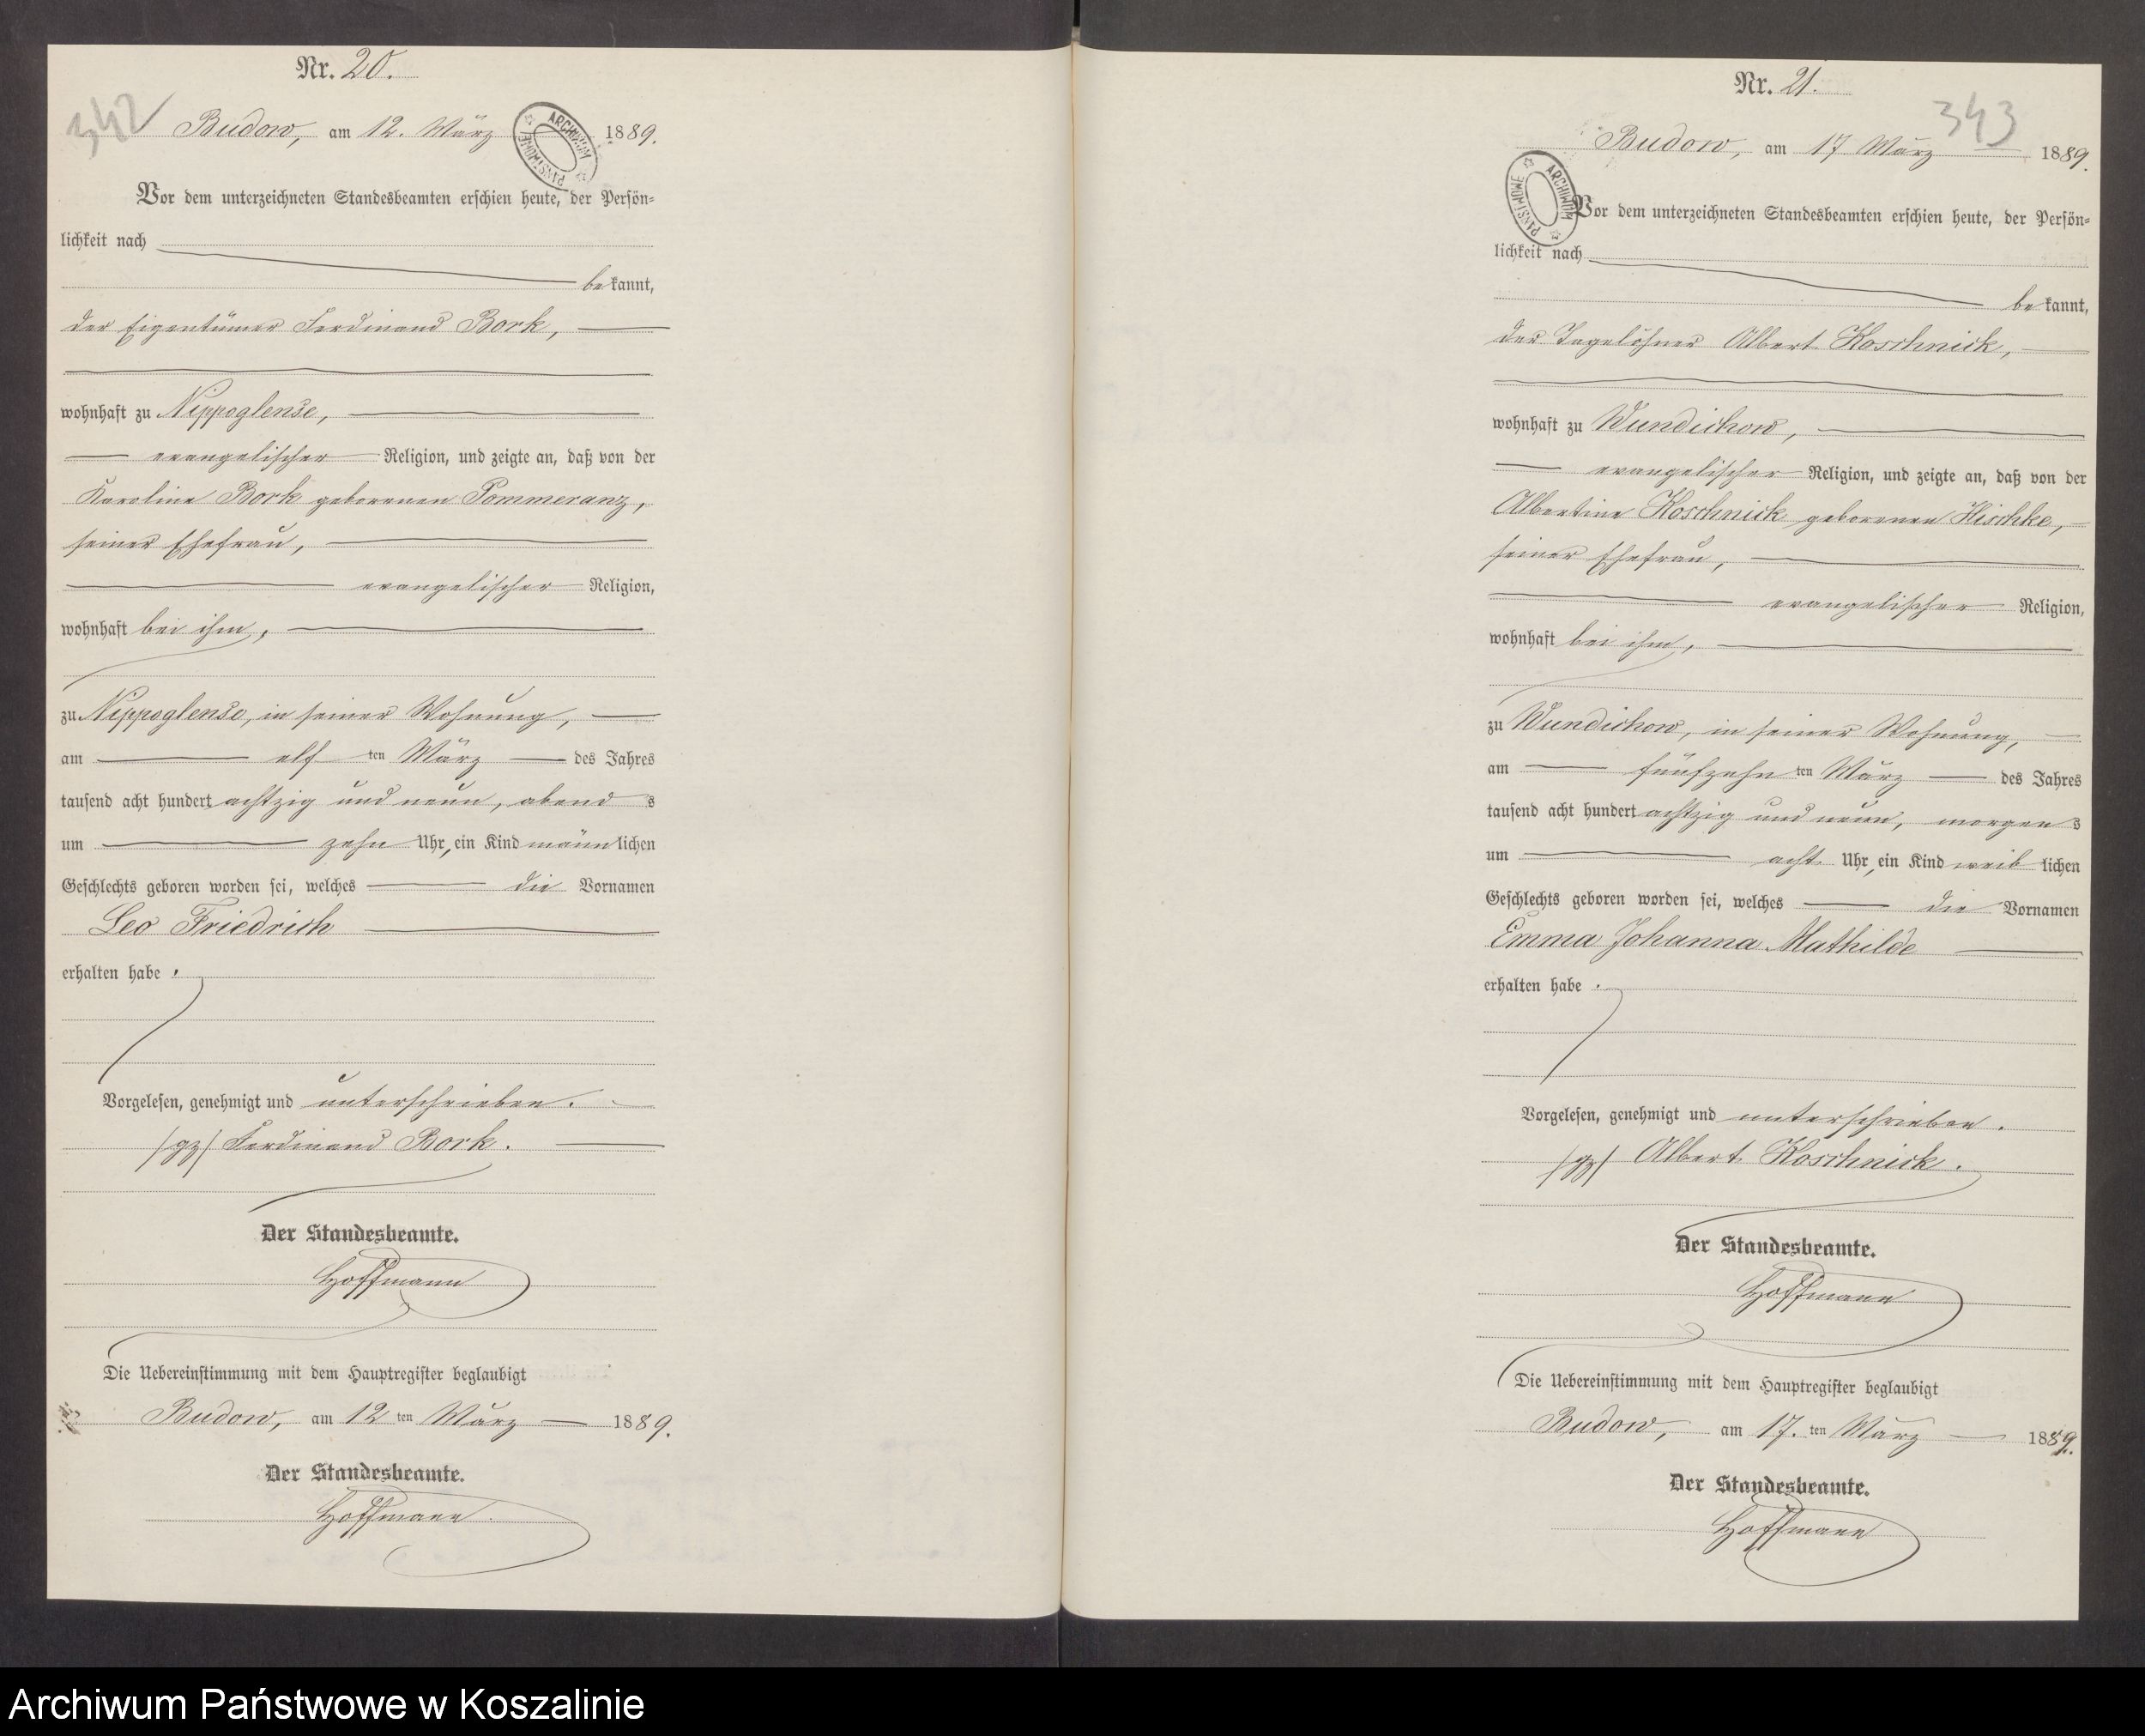 Nr. 20.
342
Budow, am 12. März 1889.
ARCHIWUM PAŃSTWOWE
Vor dem unterzeichneten Standesbeamten erschien heute, der Persön=
lichkeit nach
bekannt,
der Eigentümer Ferdinand Bork,
wohnhaft zu Nippoglense,
evangelischer Religion, und zeigte an, daß von der
Karoline Bork geborenen Pommeranz,
seiner Ehefrau,
evangelischer Religion,
wohnhaft bei ihm,
zu Nippoglense, in seiner Wohnung,
am elf ten März des Jahres
tausend acht hundert achtzig und neun, abends
um zehn Uhr, ein Kind männlichen
Geschlechts geboren worden sei, welches die Vornamen
Leo Friedrich
erhalten habe.
Vorgelesen, genehmigt und unterschrieben.
/gz/ Ferdinand Bork.
Der Standesbeamte.
Hoffmann
Die Uebereinstimmung mit dem Hauptregister beglaubigt
Budow, am 12 ten März 1889.
Der Standesbeamte.
Hoffmann.
Nr. 21.
343
Budow, am 17 März 1889.
ARCHIWUM PAŃSTWOWE
Vor dem unterzeichneten Standesbeamten erschien heute, der Persön=
lichkeit nach
bekannt,
der Tagelöhner Albert Koschnick,
wohnhaft zu Wundichow,
evangelischer Religion, und zeigte an, daß von der
Albertine Koschnick geborenen Hischke,
seiner Ehefrau,
evangelischer Religion,
wohnhaft bei ihm,
zu Wundichow, in seiner Wohnung,
am fünfzehn ten März des Jahres
tausend acht hundert achtzig und neun, morgens
um acht Uhr, ein Kind weiblichen
Geschlechts geboren worden sei, welches die Vornamen
Emma Johanna Mathilde
erhalten habe.
Vorgelesen, genehmigt und unterschrieben.
/gz/ Albert Koschnick.
Der Standesbeamte.
Hoffmann
Die Uebereinstimmung mit dem Hauptregister beglaubigt
Budow, am 17. ten März 1889.
Der Standesbeamte.
Hoffmann
Archiwum Państwowe w Koszalinie